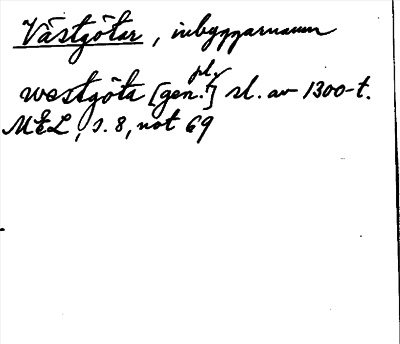 Västgötar, inbyggarnamn
westgöta [gen. pl.] sl. av 1300-t.
MEL, s. 8, not 69